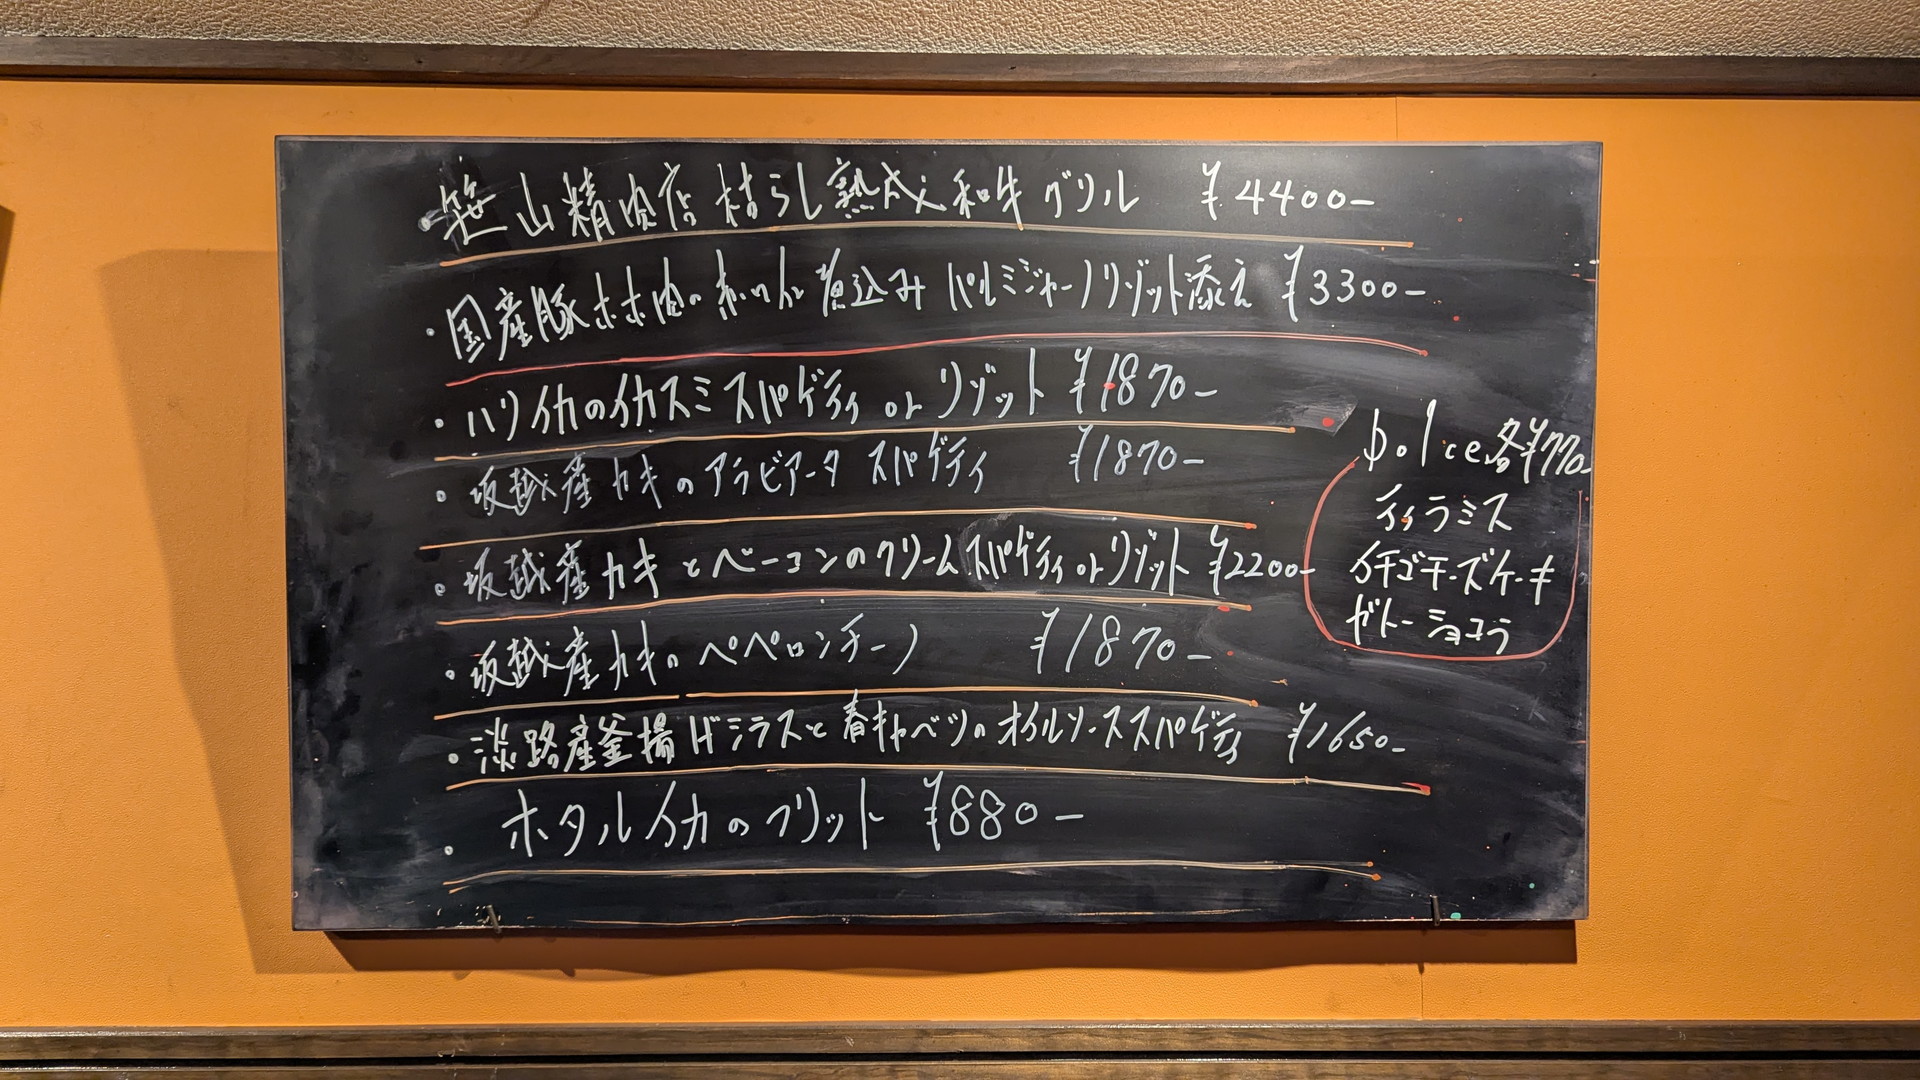 ・笹山精肉店 枯らし熟成和牛グリル ¥4400-
・国産豚ホホ肉の赤ワイン煮込み パルミジャーノリゾット添え ¥3300-
・ハリイカのイカスミスパゲティ or リゾット ¥1870-
・坂越産カキのアラビアータ スパゲティ ¥1870-
・坂越産カキとベーコンのクリームスパゲティ or リゾット ¥2200-
・坂越産カキのペペロンチーノ ¥1870-
・淡路産釜揚げシラスと春キャベツのオイルソーススパゲティ ¥1650-
・ホタルイカのフリット ¥880-
Dolce 各¥770-
ティラミス
イチゴチーズケーキ
ガトーショコラ